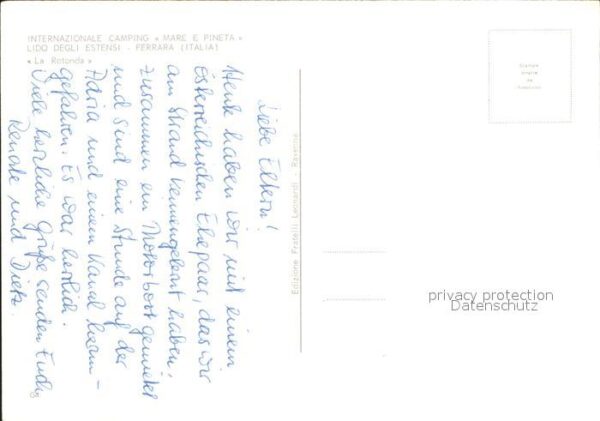 INTERNAZIONALE CAMPING « MARE E PINETA »
LIDO DEGLI ESTENSI - FERRARA (ITALIA)
« La Rotonda »
Liebe Eltern!
Heute haben wir mit einem
österreichischen Ehepaar, das wir
am Strand kennengelernt haben,
zusammen ein Motorboot gemietet
und sind eine Stunde auf der
Adria und einem Kanal herum-
gefahren. Es war herrlich.
Viele herzliche Grüße senden Euch
Renate und Dieter.
Edizione Fratelli Leonardi - Ravenna
privacy protection
Datenschutz